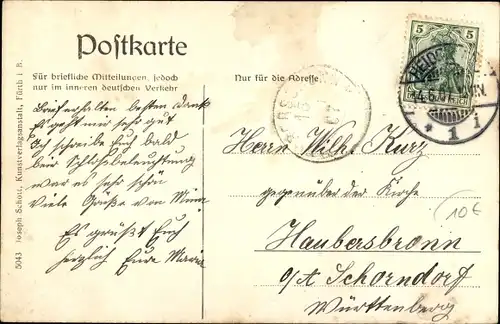 Postkarte
Für briefliche Mitteilungen, jedoch
nur im inneren deutschen Verkehr
Nur für die Adresse.
5
5
Brief erhalten besten Dank
Es geht mir sehr gut
Ich schreibe Euch bald
bei Schloßbeleuchtung
war es sehr schön
Viele Grüße von
Es grüßt Euch
herzlich Eure Maria
Herrn Wilh. Kurz
gegenüber der Kirche
Haubersbronn
o/A Schorndorf
Württemberg
10€
* 1 i
5043 Joseph Schott, Kunstverlagsanstalt, Fürth i. B.